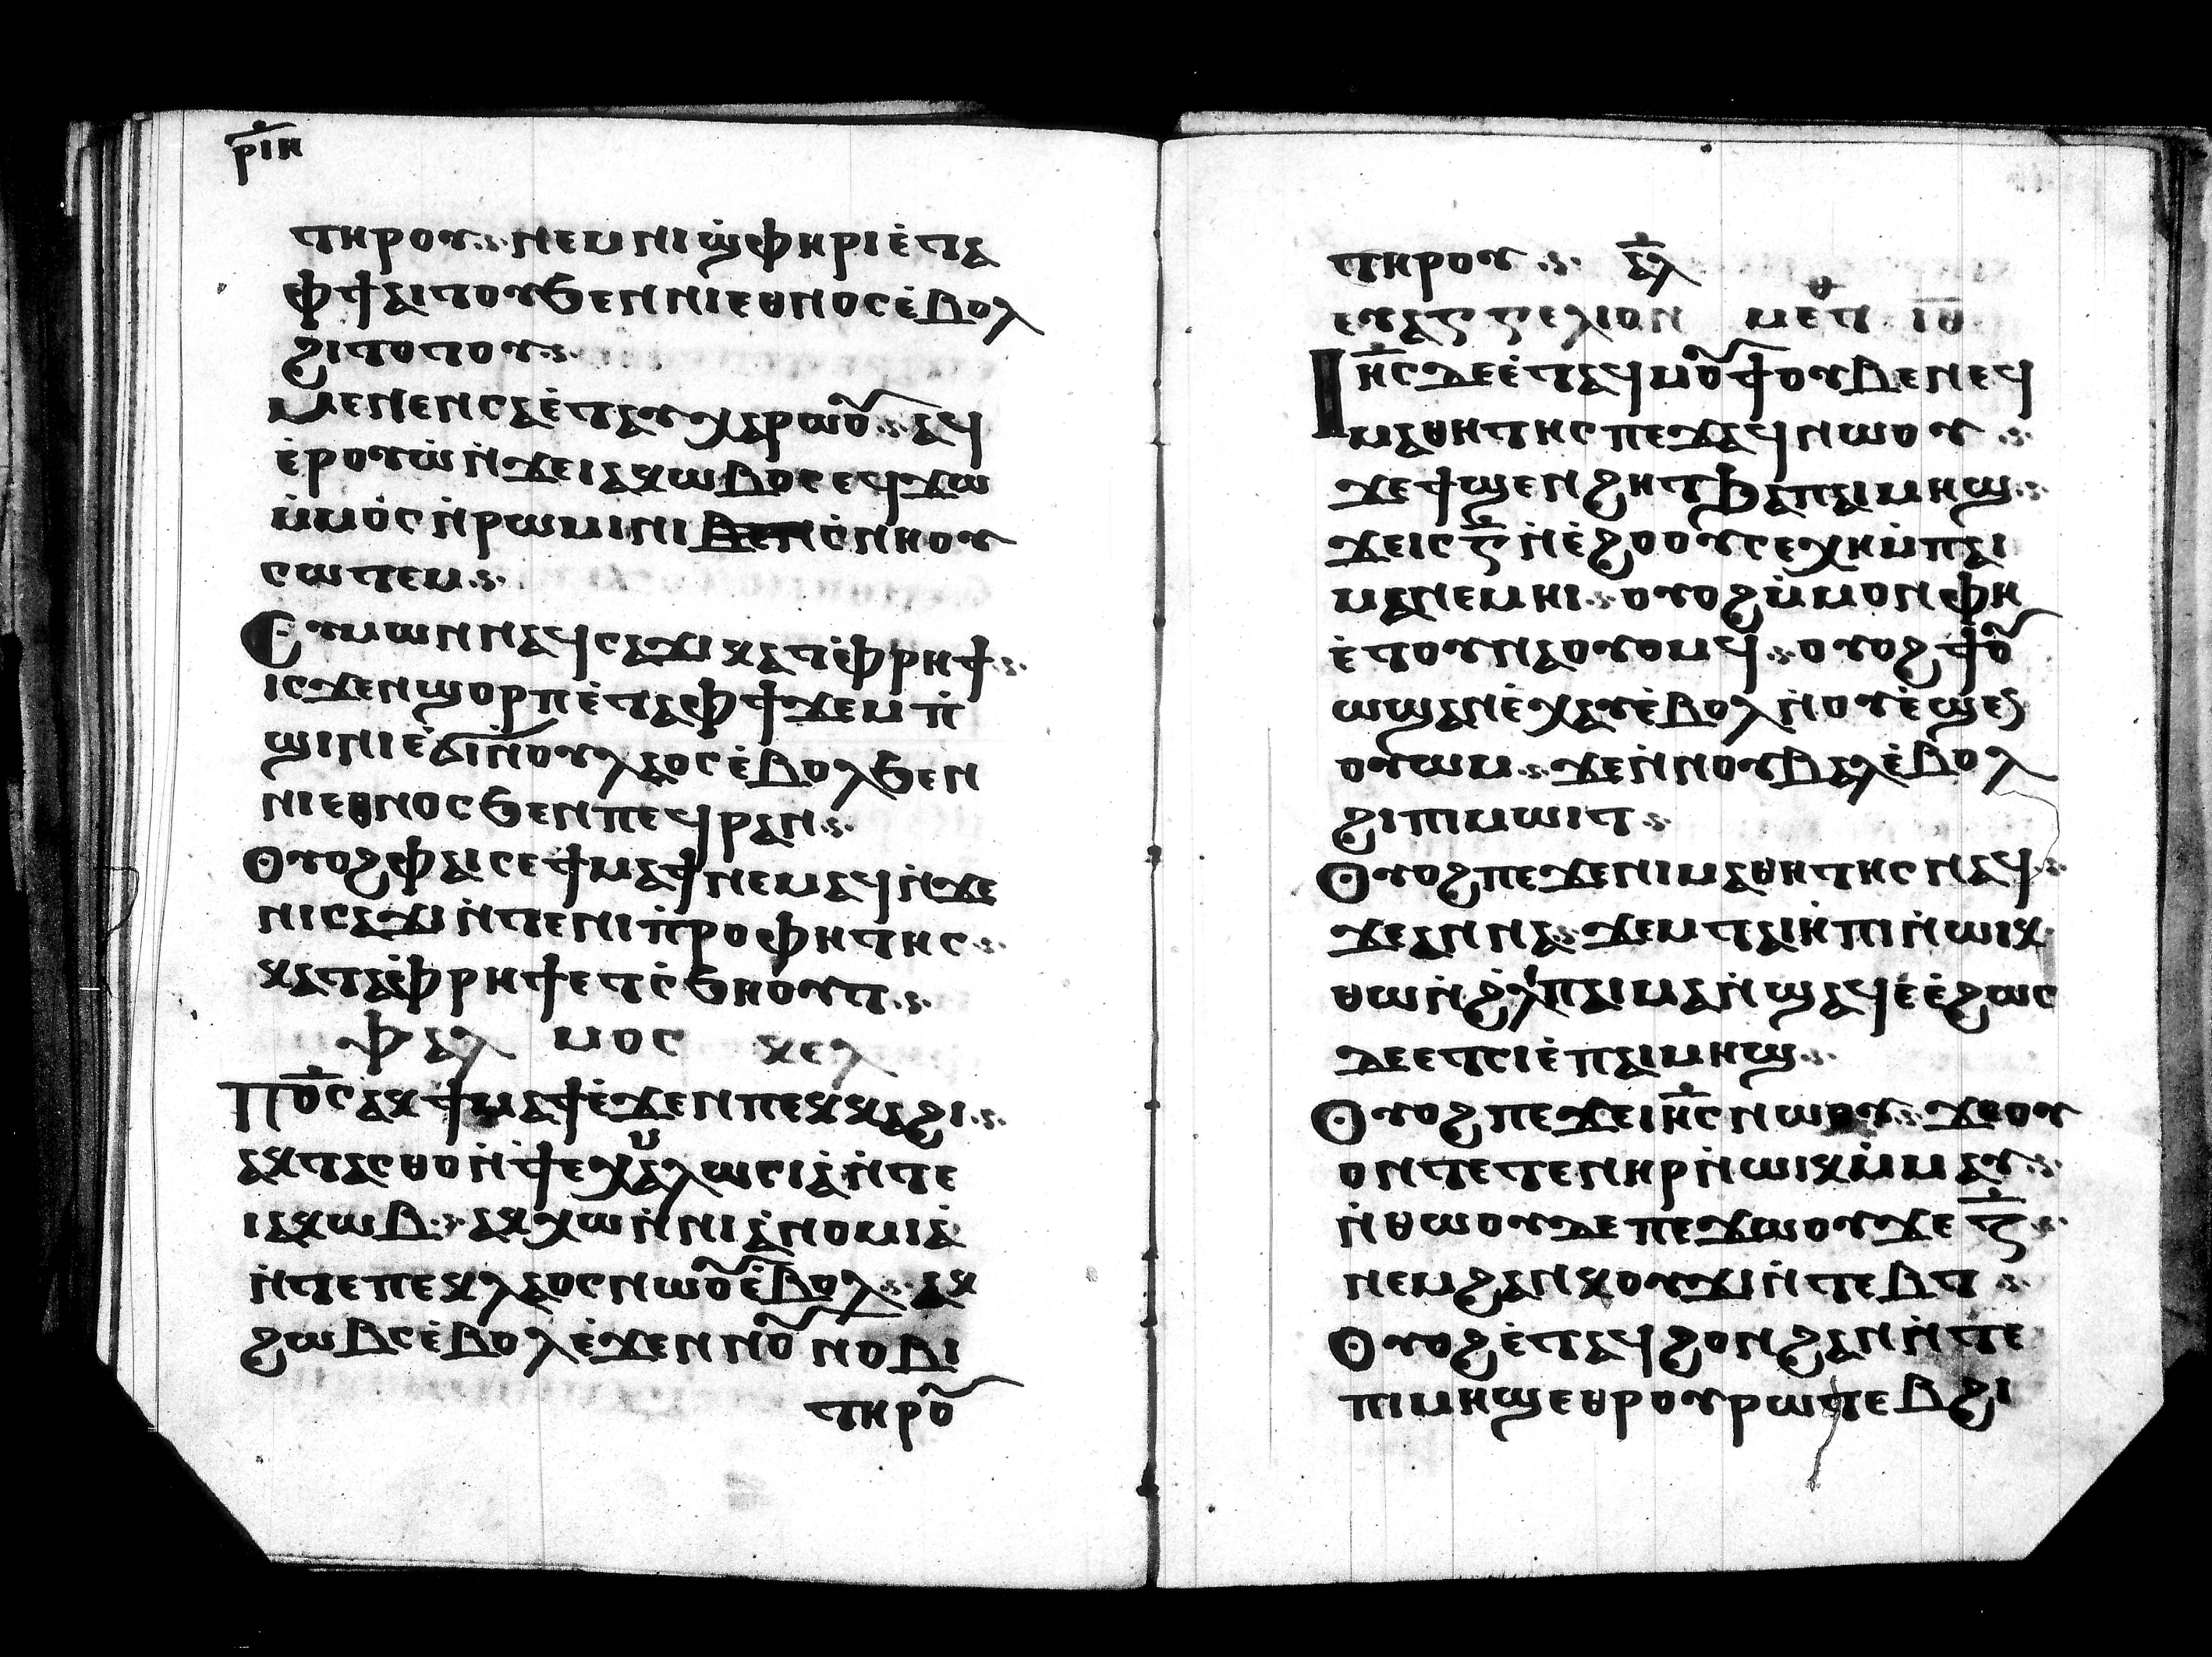 ⲣ̅ⲓ̅ⲏ̅
ⲧⲏⲣⲟⲩ · ⲛⲉⲙ ⲛⲓϣ̀ⲫⲏⲣⲓ ⲉ̀ⲧⲁ
ⲫϯ ⲁⲓⲧⲟⲩ ϧⲉⲛ ⲛⲓⲉⲑⲛⲟⲥ ⲉ̀ⲃⲟⲗ
ϩⲓⲧⲟⲧⲟⲩ ·
ⲙⲉⲛⲉⲛⲥⲁ ⲉ̀ⲧⲁⲩⲭⲁⲣⲱⲟⲩ · ⲁϥ
ⲉ̀ⲣⲟⲩⲱ̀ ⲛ̀ϫⲉ ⲓⲁⲕⲱⲃⲟⲥ ⲉϥϫⲱ
ⲙ̀ⲙⲟ̀ⲥ ⲛ̀ⲣⲱⲙⲓ ⲛⲓ ⲥ̀ⲛⲏⲟⲩ
ⲥⲱⲧⲉⲙ ·
Ⲥⲩⲙⲱⲛ ⲛⲁϥⲥⲁϫⲓ ⲕⲁⲧⲁ̀ⲫⲣⲏϯ ·
ⲓⲥϫⲉⲛ ϣⲟⲣⲡ ⲉ̀ⲧⲁ ⲫϯ ϫⲉⲙ ⲡ̀
ϣⲓⲛⲓ ⲉ̀ϭⲓ ⲛ̀ⲟⲩⲗⲁⲟⲥ ⲉ̀ⲃⲟⲗ ϧⲉⲛ
ⲛⲓⲉⲑⲛⲟⲥ ϧⲉⲛ ⲡⲉϥⲣⲁⲛ ·
Ⲟⲩⲟϩ ⲫⲁⲓ ⲥⲉϯⲙⲁϯ ⲛⲉⲙⲁϥ ⲛ̀ϫⲉ
ⲛⲓⲥⲁϫⲓ ⲛ̀ⲧⲉ ⲛⲓⲡ̀ⲣⲟⲫⲏⲧⲏⲥ ·
ⲕⲁⲧⲁ̀ⲫⲣⲏϯ ⲉⲧⲥ̀ϧⲏⲟⲩⲧ ·
ⲯⲁⲗ ⲙⲟⲥ ⲕⲉⲗ
Ⲡⲟ̅ⲥ̅ ⲁⲕϯⲙⲁϯ ⲉ̀ϫⲉⲛ ⲡⲉⲕⲕⲁϩⲓ ·
ⲁⲕⲧⲁⲥⲑⲟ ⲛ̀ϯⲉⲭⲙⲁⲗⲱⲥⲓⲁ̀ ⲛ̀ⲧⲉ
ⲓⲁⲕⲱⲃ · ⲁⲕⲭⲱ ⲛ̀ⲛⲓⲁ̀ⲛⲟⲙⲓⲁ̀
ⲛ̀ⲧⲉ ⲡⲉⲕⲗⲁⲟⲥ ⲛⲱⲟⲩ ⲉ̀ⲃⲟⲗ · ⲁⲕ
ϩⲱⲃⲥ ⲉ̀ⲃⲟⲗ ⲉ̀ϫⲉⲛ ⲛⲟⲩ ⲛⲟⲃⲓ
ⲧⲏⲣⲟⲩ
ⲧⲏⲣⲟⲩ · ⲁ̅ⲗ̅
ⲉⲩⲁⲅⲅⲉⲗⲓⲟⲛ ⲙⲉⲧⲑ ⲓ̅ⲑ̅
Ⲓⲏ̅ⲥ̅ ⲇⲉ ⲉ̀ⲧⲁϥⲙⲟⲩϯ ⲟⲩⲃⲉ ⲛⲉϥ
ⲙⲁⲑⲏⲧⲏⲥ ⲡⲉϫⲁϥ ⲛⲱⲟⲩ ·
ϫⲉ ϯϣⲉⲛϩⲏⲧ ϧⲁ ⲡⲁⲓⲙⲏϣ ·
ϫⲉ ⲓⲥ ⲅ̅ ⲛ̀ⲉ̀ϩⲟⲟⲩ ⲥⲉⲭⲏ ⲙ̀ⲡⲁⲓ
ⲙⲁ ⲛⲉⲙⲏⲓ · ⲟⲩⲟϩ ⲙ̀ⲙⲟⲛ ⲫⲏ
ⲉ̀ⲧⲟⲩⲛⲁⲟⲩⲟⲙϥ · ⲟⲩⲟϩ ϯⲟⲩ
ⲱϣ ⲁⲛ ⲉ̀ⲭⲁⲩ ⲉ̀ⲃⲟⲗ ⲛ̀ⲟⲩⲉ̀ϣⲉⲛ
ⲟⲩⲱⲙ · ϫⲉⲛ̀ⲛⲟⲩⲃⲁⲗ ⲉ̀ⲃⲟⲗ
ϩⲓ ⲡⲓⲙⲱⲓⲧ ·
Ⲟⲩⲟϩ ⲡⲉϫⲉ ⲛⲓⲙⲁⲑⲏⲧⲏⲥ ⲛⲁϥ ·
ϫⲉ ⲁⲛⲛⲁ · ϫⲉⲙ ⲧⲁⲓⲏ̀ⲡⲓ ⲛ̀ⲱⲓⲕ
ⲑⲱⲛ ϩⲓ ⲡⲁⲓⲙⲁ ⲛ̀ϣⲁϥⲉ̀ ⲉ̀ϩⲱⲥ
ⲇⲉ ⲉⲧⲥⲓⲉ̀ ⲡⲁⲓⲙⲏϣ ·
Ⲟⲩⲟϩ ⲡⲉϫⲉ ⲓⲏ̅ⲥ̅ ⲛⲱⲟⲩ · ϫⲉ ⲟⲩ
ⲟⲛⲧⲉⲧⲉⲛ ⲏⲣ ⲛ̀ⲱⲓⲕ ⲙ̀ⲙⲁⲩ ·
ⲛ̀ⲑⲱⲟⲩ ⲇⲉ ⲡⲉϫⲱⲟⲩ ϫⲉ ⲋ̅ ·
ⲛⲉⲙ ϩⲁⲛⲕⲟⲩϫⲓ ⲛ̀ⲧⲉⲃⲧ ·
Ⲟⲩⲟϩ ⲉ̀ⲧⲁϥϩⲟⲛϩⲁⲛ ⲛ̀ⲧⲉ
ⲡⲓⲙⲏϣ ⲉⲑⲣⲟⲩⲣⲱⲧⲉⲃ ϩⲓ